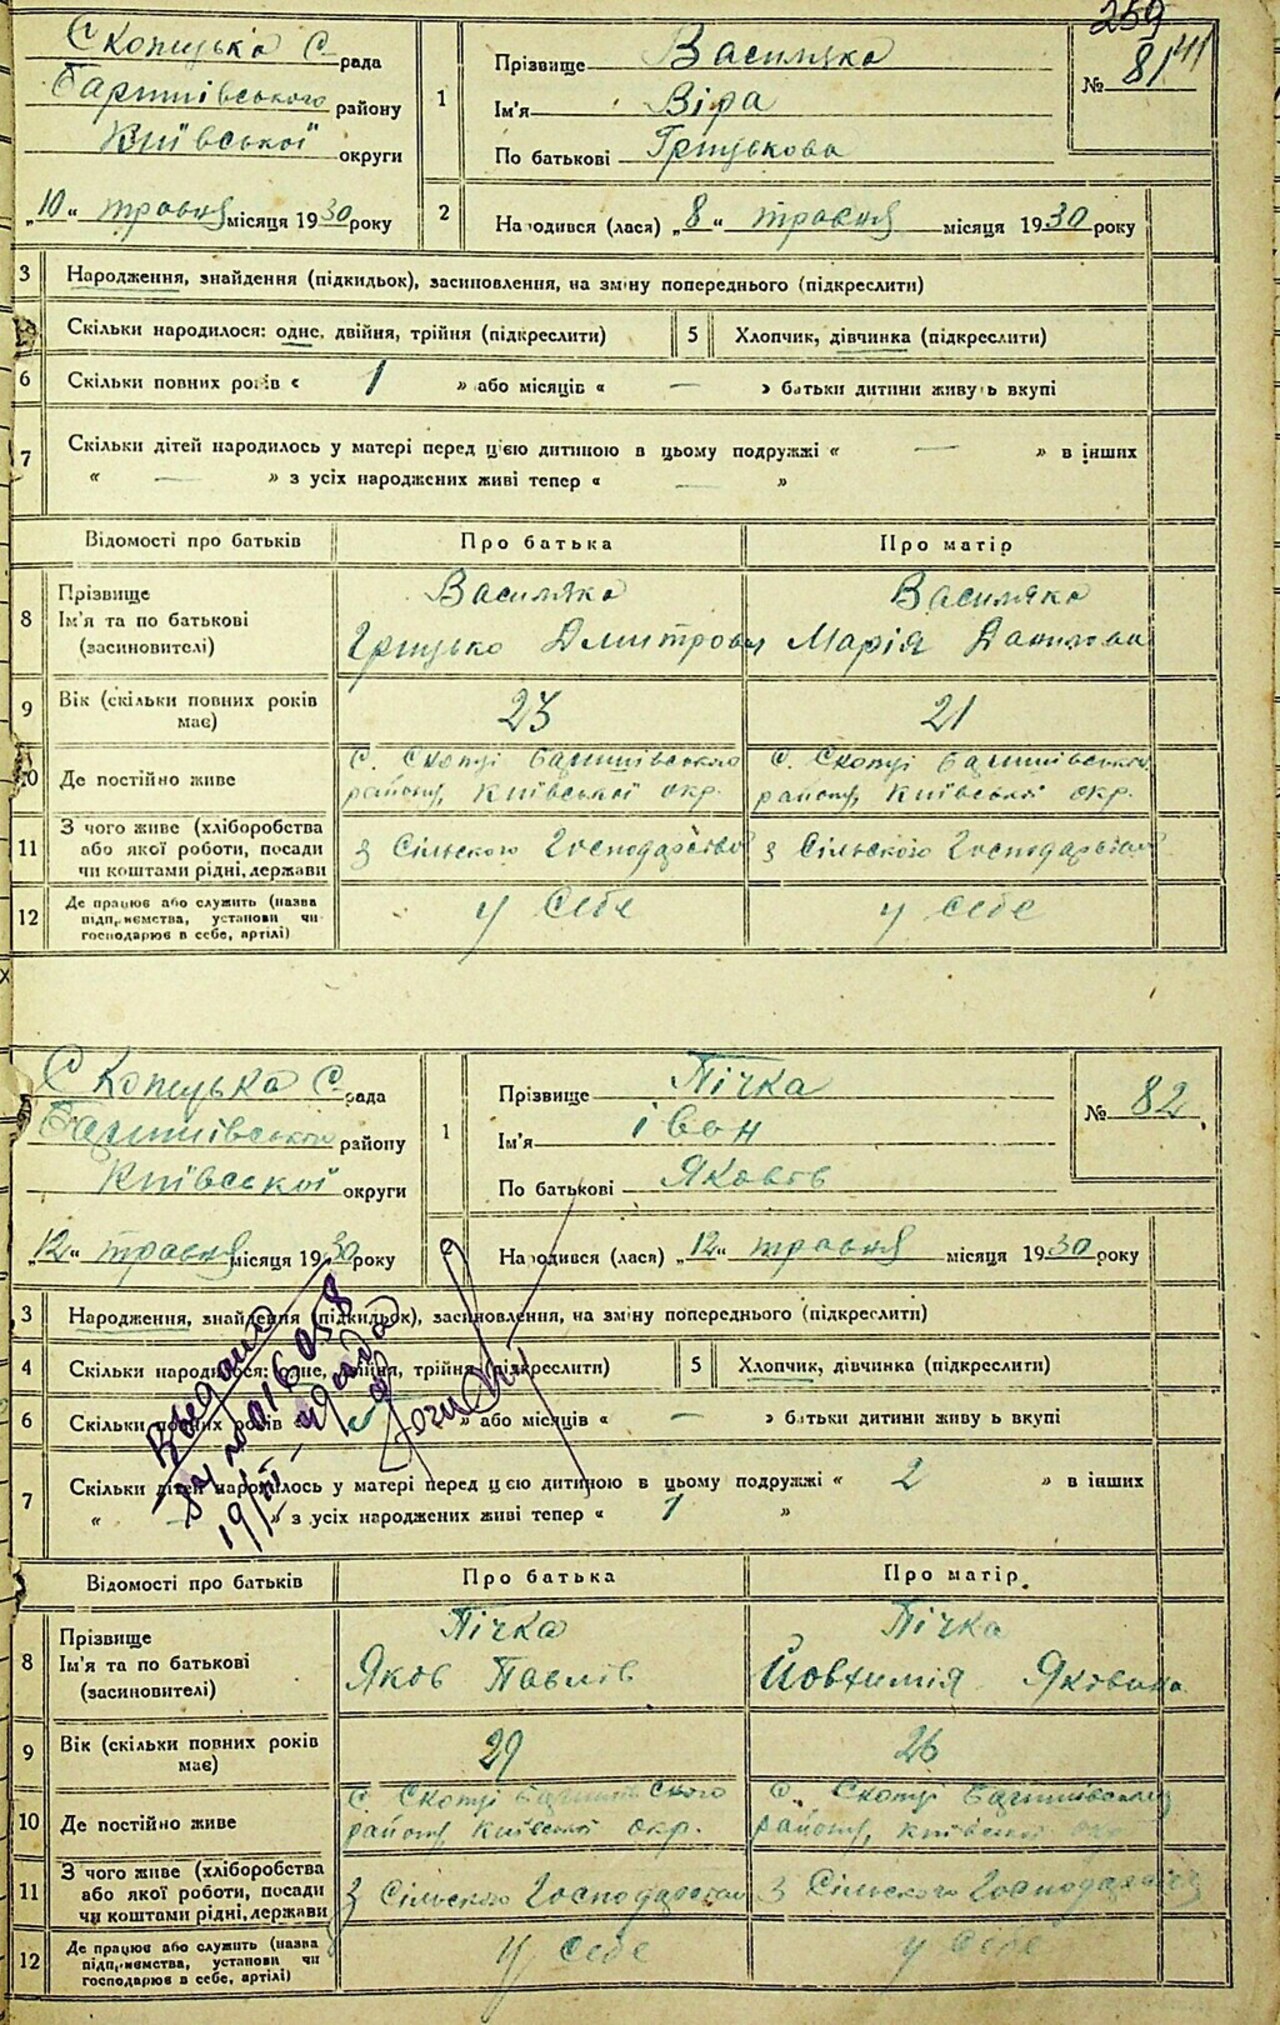 259
Скопецька С. рада
Баришівського району
Київської округи
„10“ травня місяця 1930 року
1
Прізвище Василяка
Ім'я Віра
По батькові Грицькова
№ 81
2
Народився (лася) „8“ травня місяця 1930 року
3 Народження, знайдення (підкидьок), засиновлення, на зміну попереднього (підкреслити)
Скільки народилося: одне, двійня, трійня (підкреслити) 5 Хлопчик, дівчинка (підкреслити)
6 Скільки повних років « 1 » або місяців « — » батьки дитини живуть вкупі
7 Скільки дітей народилось у матері перед цією дитиною в цьому подружжі « — » в інших
« — » з усіх народжених живі тепер « — »
Відомості про батьків Про батька Про матір
8 Прізвище
Ім'я та по батькові
(засиновителі)
Василяка
Грицько Дмитрович
Василяка
Марія Данилова
9 Вік (скільки повних років
має)
23 21
10 Де постійно живе
с. Скопці Баришівського
району, Київської окр.
с. Скопці Баришівського
району, Київської окр.
11 З чого живе (хліборобства
або якої роботи, посади
чи коштами рідні, держави
з Сільского Господарства з Сільского Господарства
12 Де працює або служить (назва
підприємства, установи чи
господарює в себе, артілі)
у себе у себе
Скопецька С. рада
Баришівського району
Київської округи
„12“ травня місяця 1930 року
1
Прізвище Пічка
Ім'я Іван
По батькові Яковів
№ 82
Народився (лася) „12“ травня місяця 1930 року
3 Народження, знайдення (підкидьок), засиновлення, на зміну попереднього (підкреслити)
4 Скільки народилося: одне, двійня, трійня (підкреслити) 5 Хлопчик, дівчинка (підкреслити)
6 Скільки повних років « » або місяців « — » батьки дитини живуть вкупі
7 Скільки дітей народилось у матері перед цією дитиною в цьому подружжі « 2 » в інших
« — » з усіх народжених живі тепер « 1 »
Відомості про батьків Про батька Про матір
8 Прізвище
Ім'я та по батькові
(засиновителі)
Пічка
Яков Павлів
Пічка
Йовхимія Яковина
9 Вік (скільки повних років
має)
29 26
10 Де постійно живе
с. Скопці Баришівського
району Київської окр.
с. Скопці Баришівського
району, Київської окр
11 З чого живе (хліборобства
або якої роботи, посади
чи коштами рідні, держави
З Сільского Господарства З Сільского Господарства
12 Де працює або служить (назва
підприємства, установи чи
господарює в себе, артілі)
у себе у себе